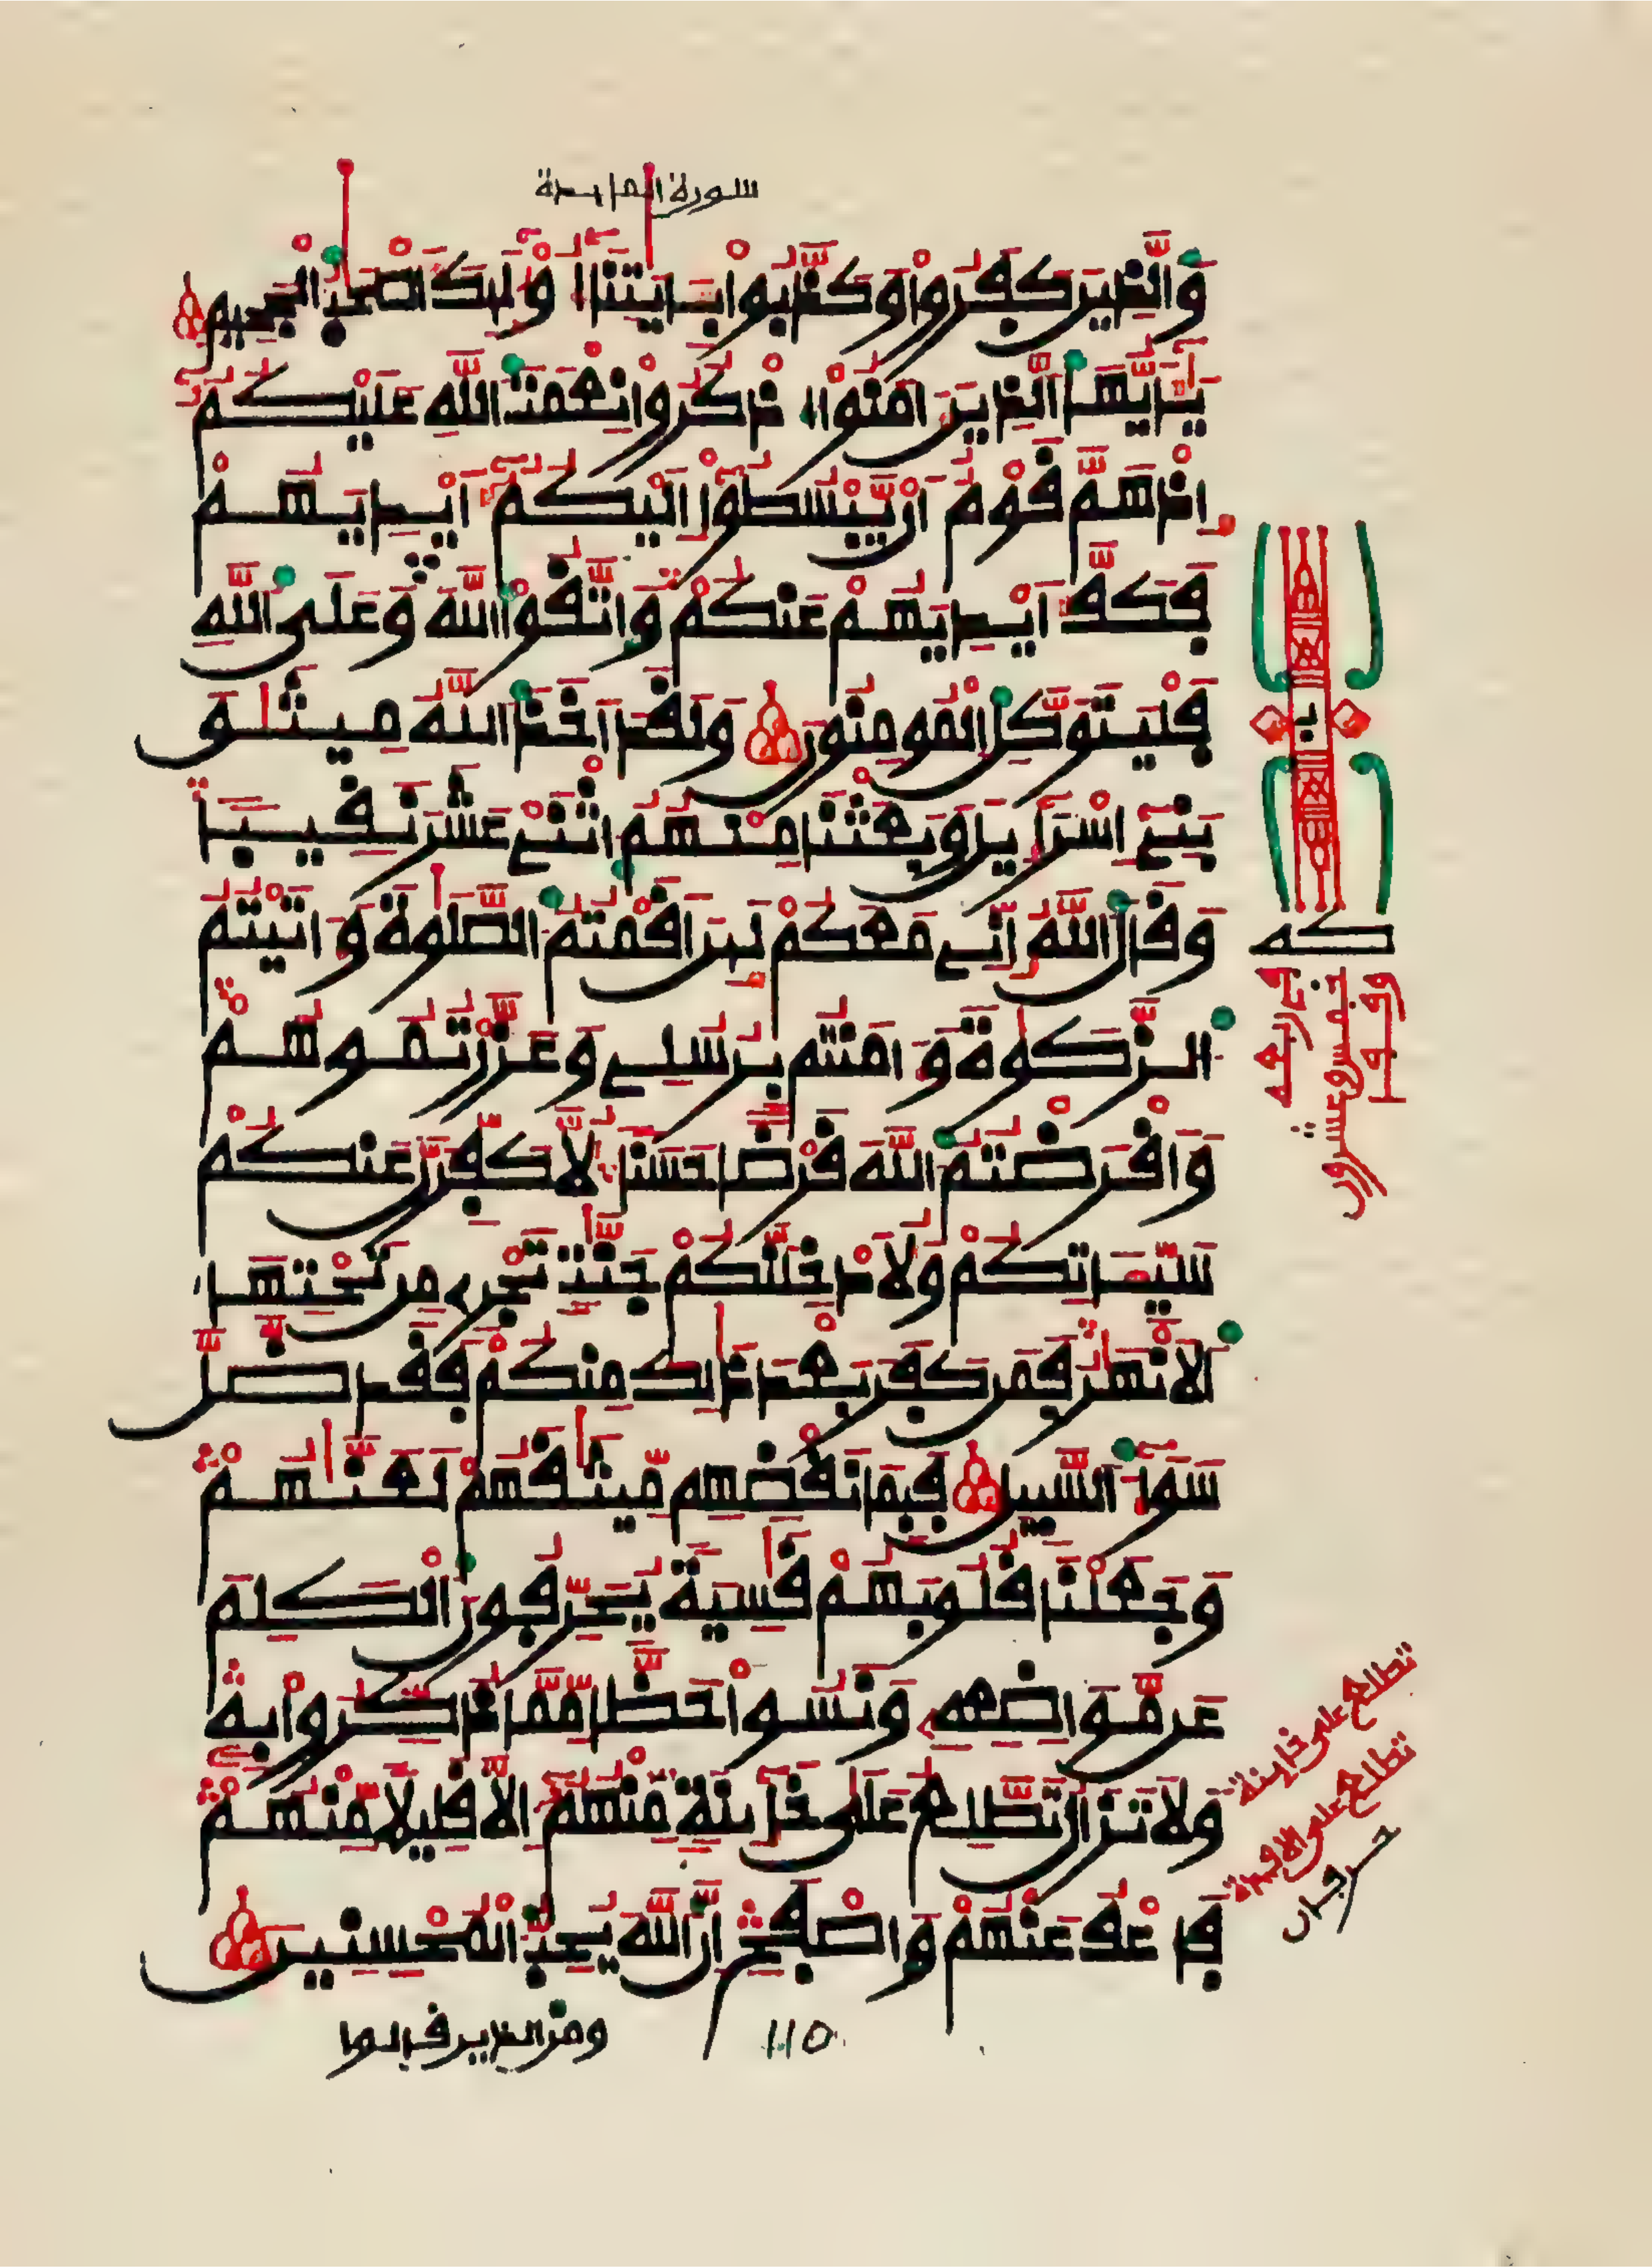 سورة المايدة
وَالذِينَ كَفَرُوا وَكَذَّبُوا بِـَٔايَٰتِنَا أُوْلَٰٓئِكَ أَصْحَٰبُ الْجَحِيمِ
يَٰٓأَيُّهَا الذِينَ ءَامَنُوا اذْكُرُوا نِعْمَتَ اللَّهِ عَلَيْكُمُۥٓ
إِذْ هَمَّ قَوْمٌ أَنْ يَّبْسُطُوا إِلَيْكُمُۥٓ أَيْدِيَهُمْ
فَكَفَّ أَيْدِيَهُمْ عَنكُمْ وَاتَّقُوا اللَّهَ وَعَلَى اللَّهِ
فَلْيَتَوَكَّلِ الْمُومِنُونَ وَلَقَدْ أَخَذَ اللَّهُ مِيثَٰقَ
بَنِي إِسْرَآءِيلَ وَبَعَثْنَا مِنْهُمُ اثْنَيْ عَشَرَ نَقِيبًا
وَقَالَ اللَّهُ إِنِّي مَعَكُمْ لَئِنْ أَقَمْتُمُ الصَّلَوٰةَ وَءَاتَيْتُمُ
الزَّكَوٰةَ وَءَامَنْتُم بِرُسُلِي وَعَزَّرْتُمُوهُمْ
وَأَقْرَضْتُمُ اللَّهَ قَرْضًا حَسَنًا لَّأُكَفِّرَنَّ عَنكُمْ
سَيِّـَٔاتِكُمْ وَلَأُدْخِلَنَّكُمْ جَنَّٰتٍ تَجْرِي مِن تَحْتِهَا
الْأَنْهَٰرُ فَمَن كَفَرَ بَعْدَ ذَٰلِكَ مِنكُمْ فَقَد ضَّلَّ
سَوَآءَ السَّبِيلِ فَبِمَا نَقْضِهِم مِّيثَٰقَهُمْ لَعَنَّٰهُمْ
وَجَعَلْنَا قُلُوبَهُمْ قَٰسِيَةً يُحَرِّفُونَ الْكَلِمَ
عَن مَّوَاضِعِهِۦ وَنَسُوا حَظًّا مِّمَّا ذُكِّرُوا بِهِۦ
وَلَا تَزَالُ تَطَّلِعُ عَلَىٰ خَآئِنَةٍ مِّنْهُمُۥٓ إِلَّا قَلِيلًا مِّنْهُمْ
فَاعْفُ عَنْهُمْ وَاصْفَحْ إِنَّ اللَّهَ يُحِبُّ الْمُحْسِنِينَ
ومن الذين قالوا
110
كه
تطلع على خاينة
تطلع على الافيدة
حرفان